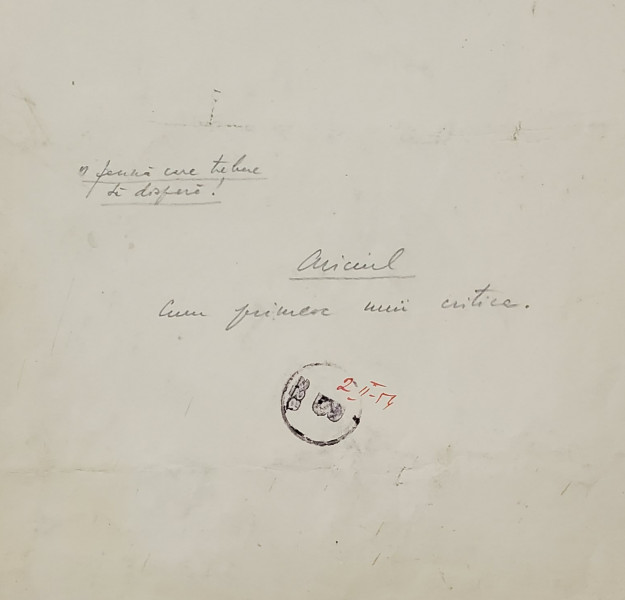 O femeie care trebuie
să dispară!
Ariciul
Cum primesc unii critica.
2-II-54